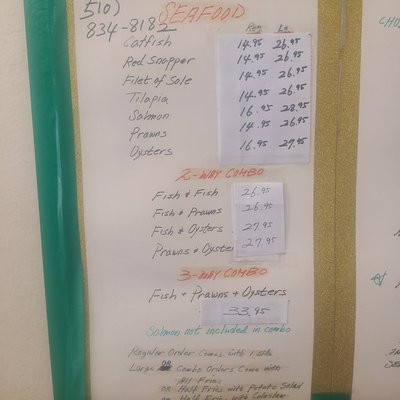 510)
834-8182
SEAFOOD
Reg Lg
Catfish 14.95 26.95
Red Snapper 14.95 26.95
Filet of Sole 14.95 26.95
Tilapia 14.95 26.95
Salmon 16.95 28.95
Prawns 14.95 26.95
Oysters 16.95 27.95
2-WAY COMBO
Fish & Fish 26.95
Fish & Prawns 26.95
Fish & Oysters 27.95
Prawns & Oyster 27.95
3-WAY COMBO
Fish + Prawns + Oysters
33.95
Salmon not included in combo
Regular Order Comes with 1 side
Large OR Combo Orders Come with
All Fries
OR Half Fries with Potato Salad
OR Half Fries with Coleslaw